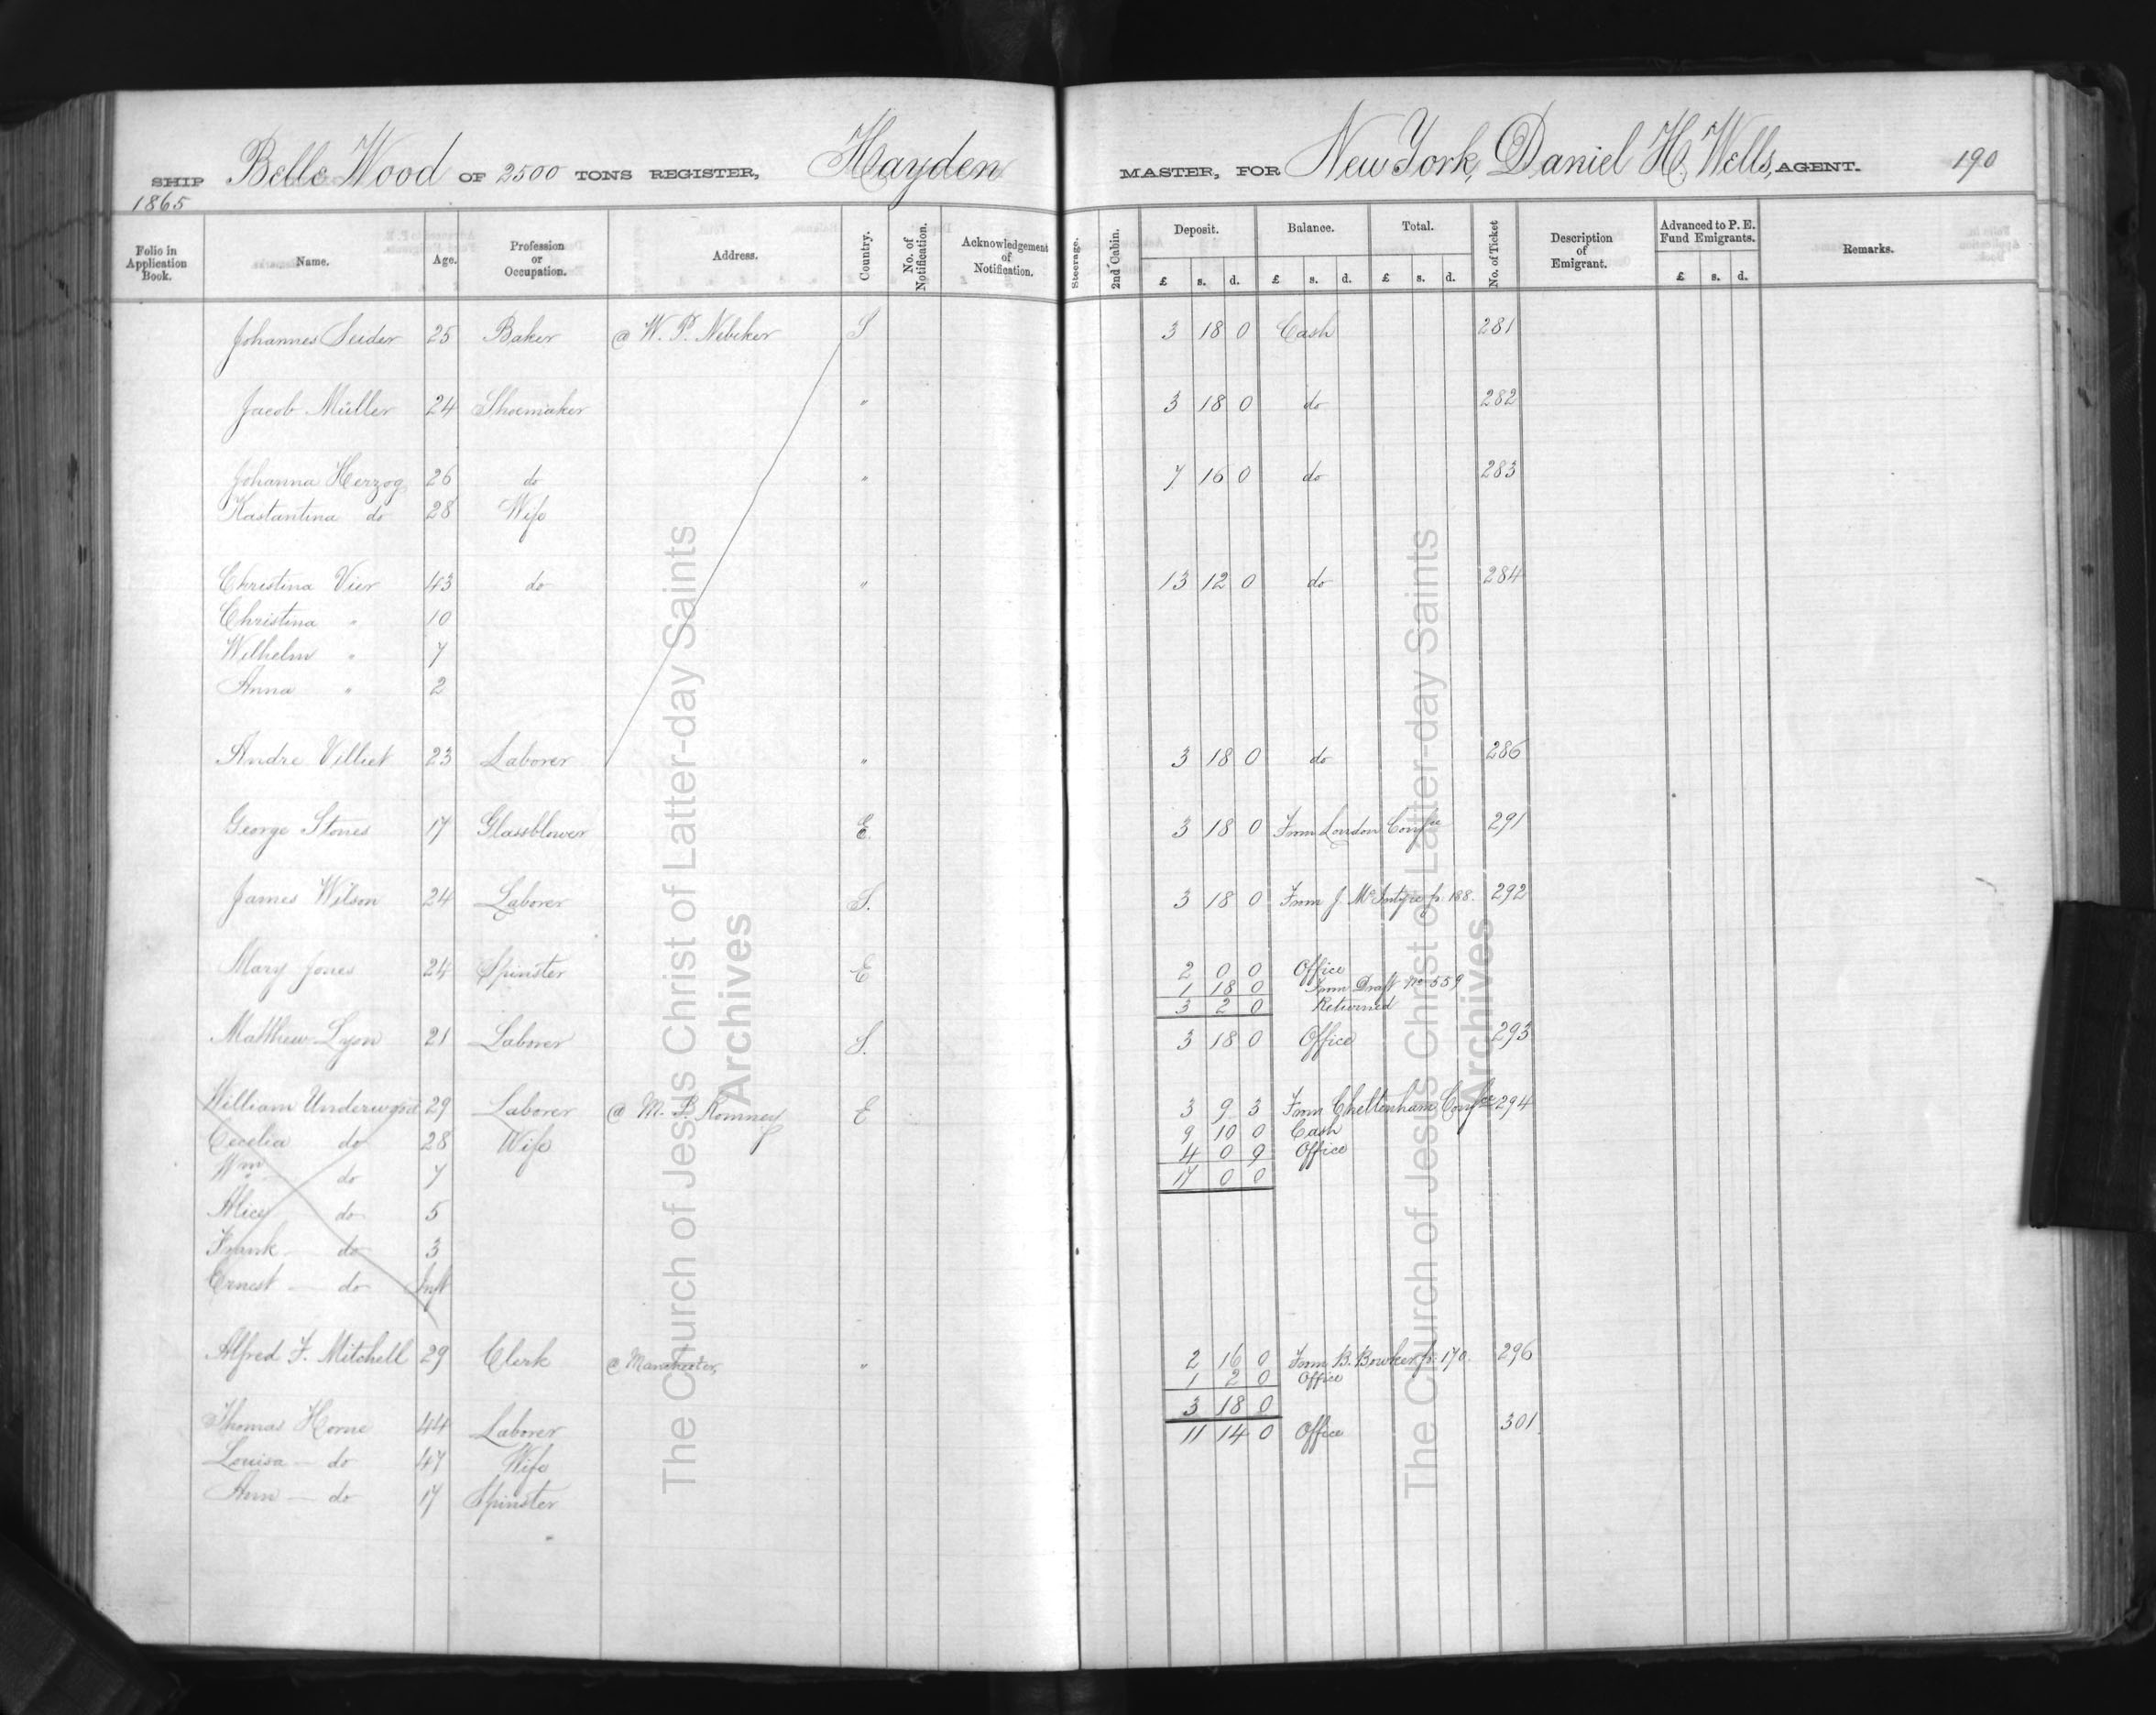 SHIP Belle Wood OF 2500 TONS REGISTER, Hayden MASTER, FOR New York, Daniel H. Wells, AGENT. 190
1865
Folio in Application Book. Name. Age. Profession or Occupation. Address. Country. No. of Notification. Acknowledgement of Notification. Steerage. 2nd Cabin. Deposit. Balance. Total. No. of Ticket Description of Emigrant. Advanced to P. E. Fund Emigrants. Remarks.
£ s. d. £ s. d. £ s. d. £ s. d.
Johannes 25 Baker @ W. P. Nebeker S 3 18 0 Cash 281
Jacob Müller 24 Shoemaker " 3 18 0 do 282
Johanna Herzog 26 do " 7 16 0 do 283
Kastantina do 28 Wife
Christina Vier 43 do " 13 12 0 do 284
Christina " 10
Wilhelm " 7
Anna " 2
Andre Villiet 23 Laborer " 3 18 0 do 286
George Stones 17 Glassblower E. 3 18 0 From London Confce 291
James Wilson 24 Laborer S. 3 18 0 From J. McIntyre p. 188. 292
Mary Jones 24 Spinster E 2 0 0 Office
1 18 0 From Draft No 559
3 2 0 Returned
Matthew Lyon 21 Laborer S. 3 18 0 Office 293
William Underwood 29 Laborer @ M. P. Romney E 3 9 3 From Cheltenham Confce 294
Cecelia do 28 Wife 9 10 0 Cash
4 0 9 Office
Wm do 7 17 0 0
Alice do 5
Frank do 3
Ernest — do Inft
Alfred F. Mitchell 29 Clerk @ Manchester, " 2 16 0 From B. Bowker p. 170. 296
1 2 0 Office
3 18 0
Thomas Horne 44 Laborer 11 14 0 Office 301
Louisa — do 47 Wife
Ann — do 17 Spinster
The Church of Jesus Christ of Latter-day Saints
Archives
The Church of Jesus Christ of Latter-day Saints
Archives